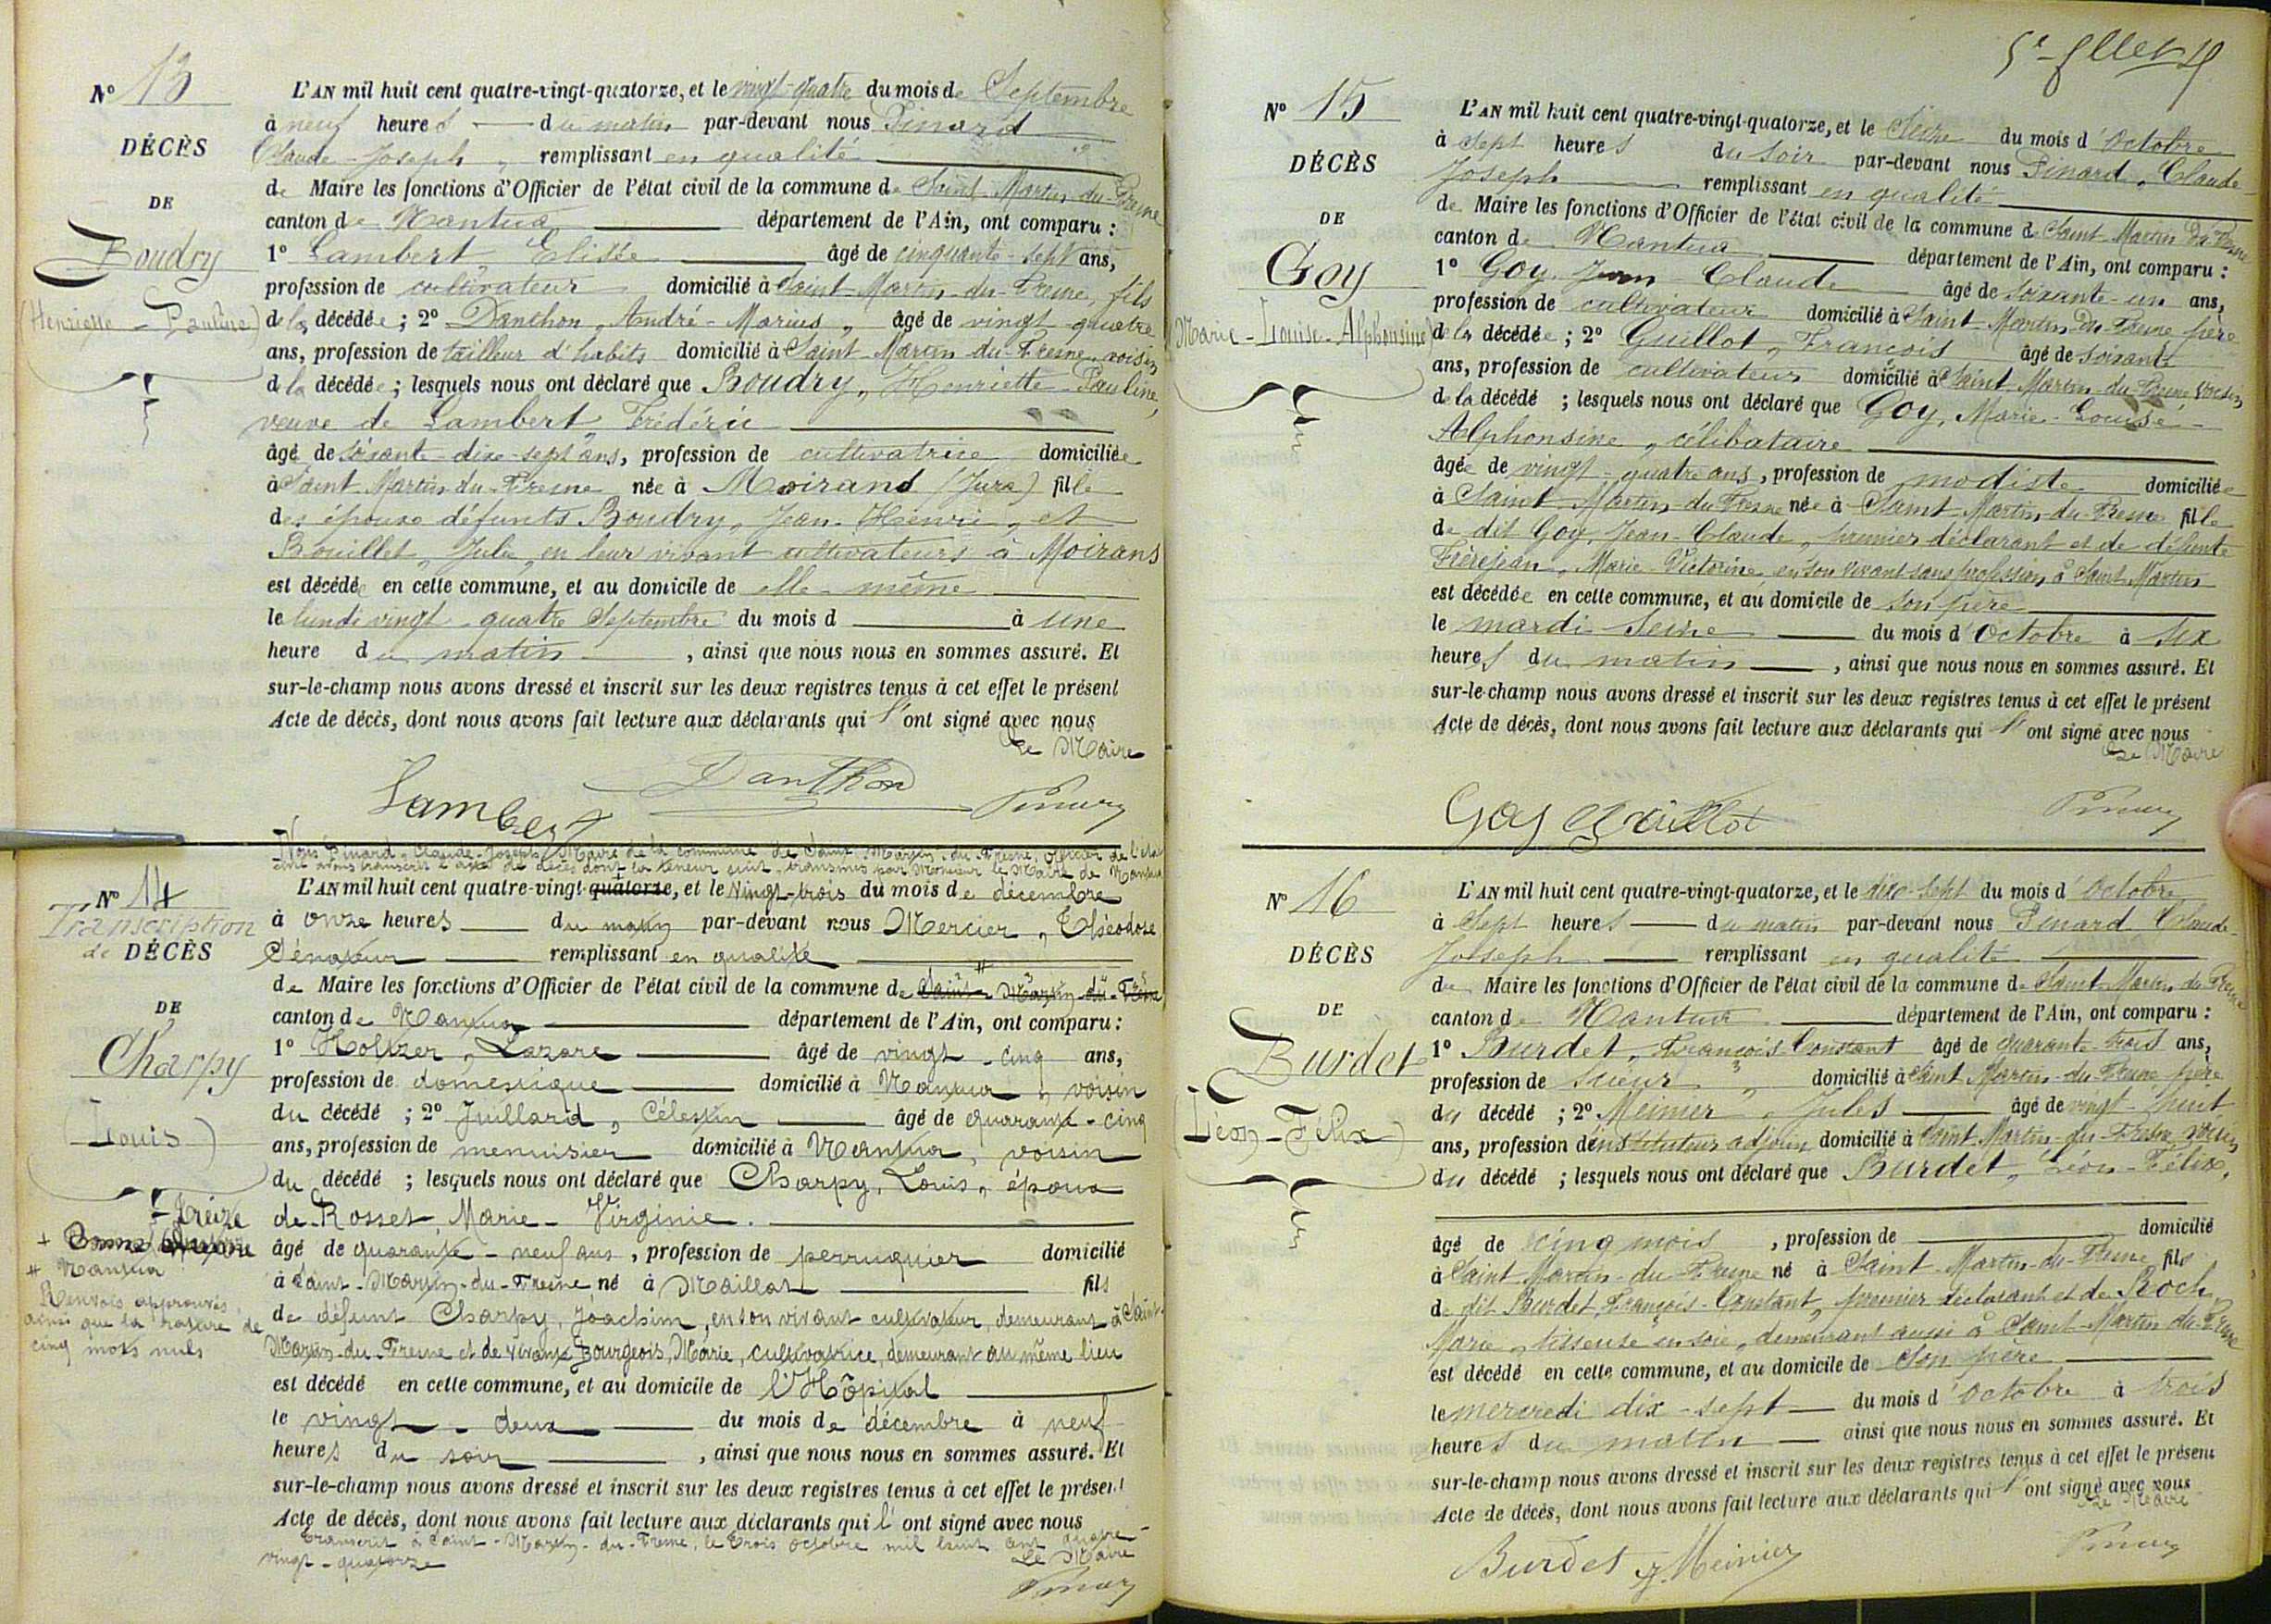 N° 13
DÉCÈS
DE
Boudry
(Henriette-Pauline)
L'AN mil huit cent quatre-vingt-quatorze, et le vingt-quatre du mois de Septembre
à neuf heures du matin par-devant nous Pinard
Claude-Joseph, remplissant en qualité
de Maire les fonctions d'Officier de l'état civil de la commune de Saint-Martin-du-Fresne
canton de Nantua département de l'Ain, ont comparu :
1° Lambert Elisée âgé de cinquante-sept ans,
profession de cultivateur domicilié à Saint-Martin-du-Fresne, fils
de la décédée ; 2° Danthon, André-Marius, âgé de vingt quatre
ans, profession de tailleur d'habits domicilié à Saint-Martin-du-Fresne, voisin
de la décédée ; lesquels nous ont déclaré que Boudry, Henriette-Pauline,
veuve de Lambert Frédéric
âgé de soixante-dix-sept ans, profession de cultivatrice domiciliée
à Saint-Martin-du-Fresne née à Moirans (Jura) fille
des époux défunts Boudry, Jean-Henri, et
Bouillet, Julie, en leur vivant cultivateurs à Moirans
est décédée en cette commune, et au domicile de elle-même
le lundi vingt-quatre Septembre du mois d à une
heure du matin , ainsi que nous nous en sommes assuré. Et
sur-le-champ nous avons dressé et inscrit sur les deux registres tenus à cet effet le présent
Acte de décès, dont nous avons fait lecture aux déclarants qui l'ont signé avec nous
Le Maire
Lambert Danthon Pinard
N° 14
Transcription
de DÉCÈS
DE
Charpy
(Louis)
treize
# Nantua
Renvois approuvés
ainsi que la rature de
cinq mots nuls
Nous Pinard, Claude-Joseph, Maire de la commune de Saint-Martin-du-Fresne, officier de l'état
civil avons transcrit l'acte de décès dont la teneur suit, transmis par Monsieur le Maire de Nantua
L'AN mil huit cent quatre-vingt-quatorze, et le vingt-trois du mois de décembre
à onze heures du matin par-devant nous Mercier, Théodore
Sénateur remplissant en qualité
de Maire les fonctions d'Officier de l'état civil de la commune de Saint-Martin-du-Fresne
canton de Nantua département de l'Ain, ont comparu :
1° Holtzer, Lazare âgé de vingt-cinq ans,
profession de domestique domicilié à Nantua, voisin
du décédé ; 2° Juillard, Célestin âgé de quarante-cinq
ans, profession de menuisier domicilié à Nantua, voisin
du décédé ; lesquels nous ont déclaré que Charpy, Louis, époux
de Rosset, Marie-Virginie.
âgé de quarante-neuf ans, profession de perruquier domicilié
à Saint-Martin-du-Fresne né à Maillat fils
de défunt Charpy, Joachim, en son vivant cultivateur, demeurant à Saint-
Martin-du-Fresne et de vivante Bourgeois, Marie, cultivatrice, demeurant au même lieu
est décédé en cette commune, et au domicile de l'Hôpital
le vingt-deux du mois de décembre à neuf
heures du soir , ainsi que nous nous en sommes assuré. Et
sur-le-champ nous avons dressé et inscrit sur les deux registres tenus à cet effet le présent
Acte de décès, dont nous avons fait lecture aux déclarants qui l'ont signé avec nous
Transcrit à Saint-Martin-du-Fresne, le trois octobre mil huit cent quatre-
vingt-quatorze Le Maire
Pinard
N° 15
DÉCÈS
DE
Goy
(Marie-Louise-Alphonsine)
L'AN mil huit cent quatre-vingt-quatorze, et le Seize du mois d'Octobre
à Sept heures du soir par-devant nous Pinard, Claude
Joseph remplissant en qualité
de Maire les fonctions d'Officier de l'état civil de la commune de Saint-Martin-du-Fresne
canton de Nantua département de l'Ain, ont comparu :
1° Goy, Jean-Claude âgé de soixante-un ans,
profession de cultivateur domicilié à Saint-Martin-du-Fresne père
de la décédée ; 2° Guillot, François âgé de soixante
ans, profession de cultivateur domicilié à Saint-Martin-du-Fresne voisin
de la décédé ; lesquels nous ont déclaré que Goy, Marie-Louise-
Alphonsine, célibataire
âgée de vingt-quatre ans, profession de modiste domiciliée
à Saint-Martin-du-Fresne née à Saint-Martin-du-Fresne fille
de dit Goy, Jean-Claude, premier déclarant et de défunte
Frèrejean, Marie Victorine, en son vivant sans profession, à Saint-Martin
est décédée en cette commune, et au domicile de son père
le mardi Seize du mois d'Octobre à six
heures du matin , ainsi que nous nous en sommes assuré. Et
sur-le-champ nous avons dressé et inscrit sur les deux registres tenus à cet effet le présent
Acte de décès, dont nous avons fait lecture aux déclarants qui l'ont signé avec nous
Le Maire
Goy Guillot Pinard
N° 16
DÉCÈS
DE
Burdet
(Léon-Félix)
L'AN mil huit cent quatre-vingt-quatorze, et le dix-sept du mois d'Octobre
à Sept heures du matin par-devant nous Pinard Claude-
Joseph remplissant en qualité
de Maire les fonctions d'Officier de l'état civil de la commune de Saint-Martin-du-Fresne
canton de Nantua département de l'Ain, ont comparu :
1° Burdet, François-Constant âgé de quarante-trois ans,
profession de scieur domicilié à Saint-Martin-du-Fresne père
du décédé ; 2° Meinier, Jules âgé de vingt-huit
ans, profession d'instituteur adjoint domicilié à Saint-Martin-du-Fresne voisin
du décédé ; lesquels nous ont déclaré que Burdet, Léon-Félix,
âgé de cinq mois , profession de domicilié
à Saint-Martin-du-Fresne né à Saint-Martin-du-Fresne fils
de dit Burdet, François-Constant, premier déclarant et de Roch,
Marie, tisseuse en soie, demeurant aussi à Saint-Martin-du-Fresne
est décédé en cette commune, et au domicile de son père
le mercredi dix-sept du mois d'Octobre à trois
heures du matin ainsi que nous nous en sommes assuré. Et
sur-le-champ nous avons dressé et inscrit sur les deux registres tenus à cet effet le présent
Acte de décès, dont nous avons fait lecture aux déclarants qui l'ont signé avec nous
Le Maire
Burdet J. Meinier Pinard